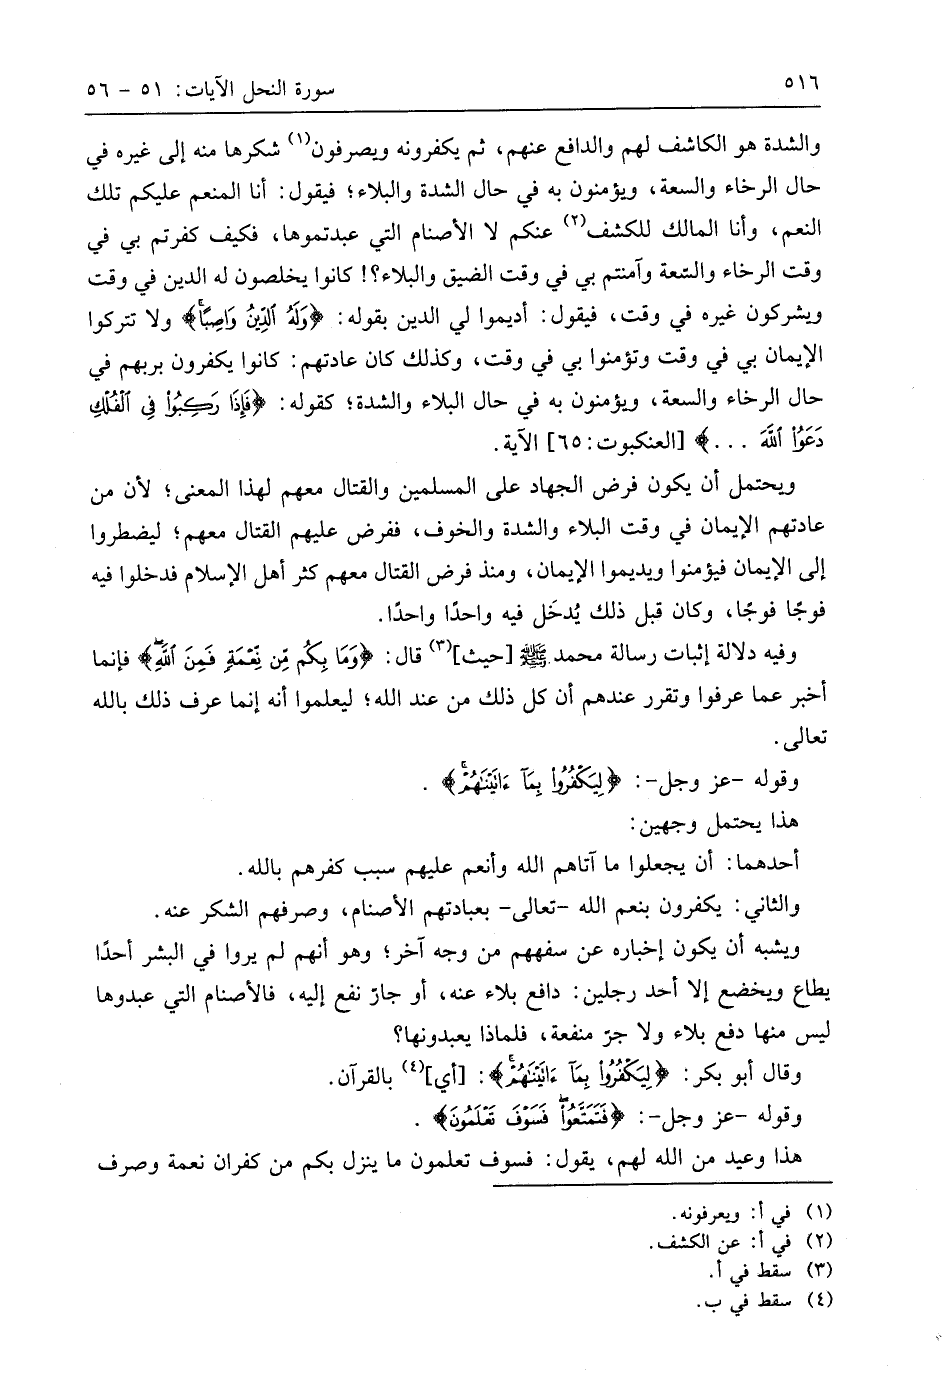 ٥١٦
سورة النحل الآيات: ٥١ - ٥٦
والشدة هو الكاشف لهم والدافع عنهم، ثم يكفرونه ويصرفون(١) شكرها منه إلى غيره في
حال الرخاء والسعة، ويؤمنون به في حال الشدة والبلاء؛ فيقول: أنا المنعم عليكم تلك
النعم، وأنا المالك للكشف(٢) عنكم لا الأصنام التي عبدتموها، فكيف كفرتم بي في
وقت الرخاء والسّعة وآمنتم بي في وقت الضيق والبلاء؟! كانوا يخلصون له الدين في وقت
ويشركون غيره في وقت، فيقول: أديموا لي الدين بقوله: ﴿وَلَهُ ٱلدِّينُ وَاصِبًاۚ﴾ ولا تتركوا
الإيمان بي في وقت وتؤمنوا بي في وقت، وكذلك كان عادتهم: كانوا يكفرون بربهم في
حال الرخاء والسعة، ويؤمنون به في حال البلاء والشدة؛ كقوله: ﴿فَإِذَا رَكِبُوا۟ فِى ٱلْفُلْكِ
دَعَوُا۟ ٱللَّهَ ...﴾ [العنكبوت: ٦٥] الآية.
ويحتمل أن يكون فرض الجهاد على المسلمين والقتال معهم لهذا المعنى؛ لأن من
عادتهم الإيمان في وقت البلاء والشدة والخوف، ففرض عليهم القتال معهم؛ ليضطروا
إلى الإيمان فيؤمنوا ويديموا الإيمان، ومنذ فرض القتال معهم كثر أهل الإسلام فدخلوا فيه
فوجًا فوجًا، وكان قبل ذلك يُدخَل فيه واحدًا واحدًا.
وفيه دلالة إثبات رسالة محمد ﷺ [حيث](٣) قال: ﴿وَمَا بِكُم مِّن نِّعْمَةٍ فَمِنَ ٱللَّهِۖ﴾ فإنما
أخبر عما عرفوا وتقرر عندهم أن كل ذلك من عند الله؛ ليعلموا أنه إنما عرف ذلك بالله
تعالى.
وقوله -عز وجل-: ﴿لِيَكْفُرُوا۟ بِمَآ ءَاتَيْنَٰهُمْۚ﴾ .
هذا يحتمل وجهين:
أحدهما: أن يجعلوا ما آتاهم الله وأنعم عليهم سبب كفرهم بالله.
والثاني: يكفرون بنعم الله -تعالى- بعبادتهم الأصنام، وصرفهم الشكر عنه.
ويشبه أن يكون إخباره عن سفههم من وجه آخر؛ وهو أنهم لم يروا في البشر أحدًا
يطاع ويخضع إلا أحد رجلين: دافع بلاء عنه، أو جارّ نفع إليه، فالأصنام التي عبدوها
ليس منها دفع بلاء ولا جرّ منفعة، فلماذا يعبدونها؟
وقال أبو بكر: ﴿لِيَكْفُرُوا۟ بِمَآ ءَاتَيْنَٰهُمْۚ﴾: [أي](٤) بالقرآن.
وقوله -عز وجل-: ﴿فَتَمَتَّعُوا۟ۖ فَسَوْفَ تَعْلَمُونَ﴾ .
هذا وعيد من الله لهم، يقول: فسوف تعلمون ما ينزل بكم من كفران نعمة وصرف
(١) في أ: ويعرفونه.
(٢) في أ: عن الكشف.
(٣) سقط في أ.
(٤) سقط في ب.